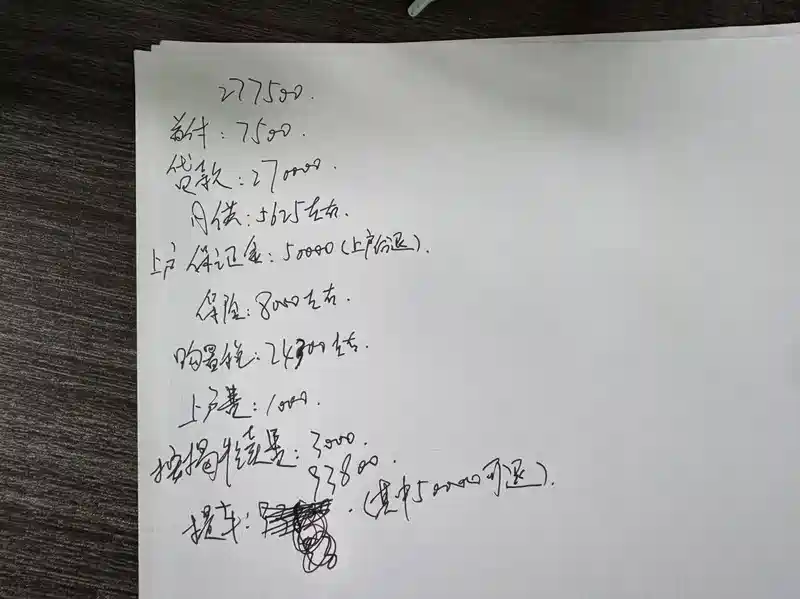 277500.
首付:7500.
贷款:270000.
月供:5625左右.
上户保证金:50000(上户后退).
保险:8000左右.
购置税:24300左右.
上户费:1000.
按揭手续费:3000.
93800.
提车: . (其中50000可退).